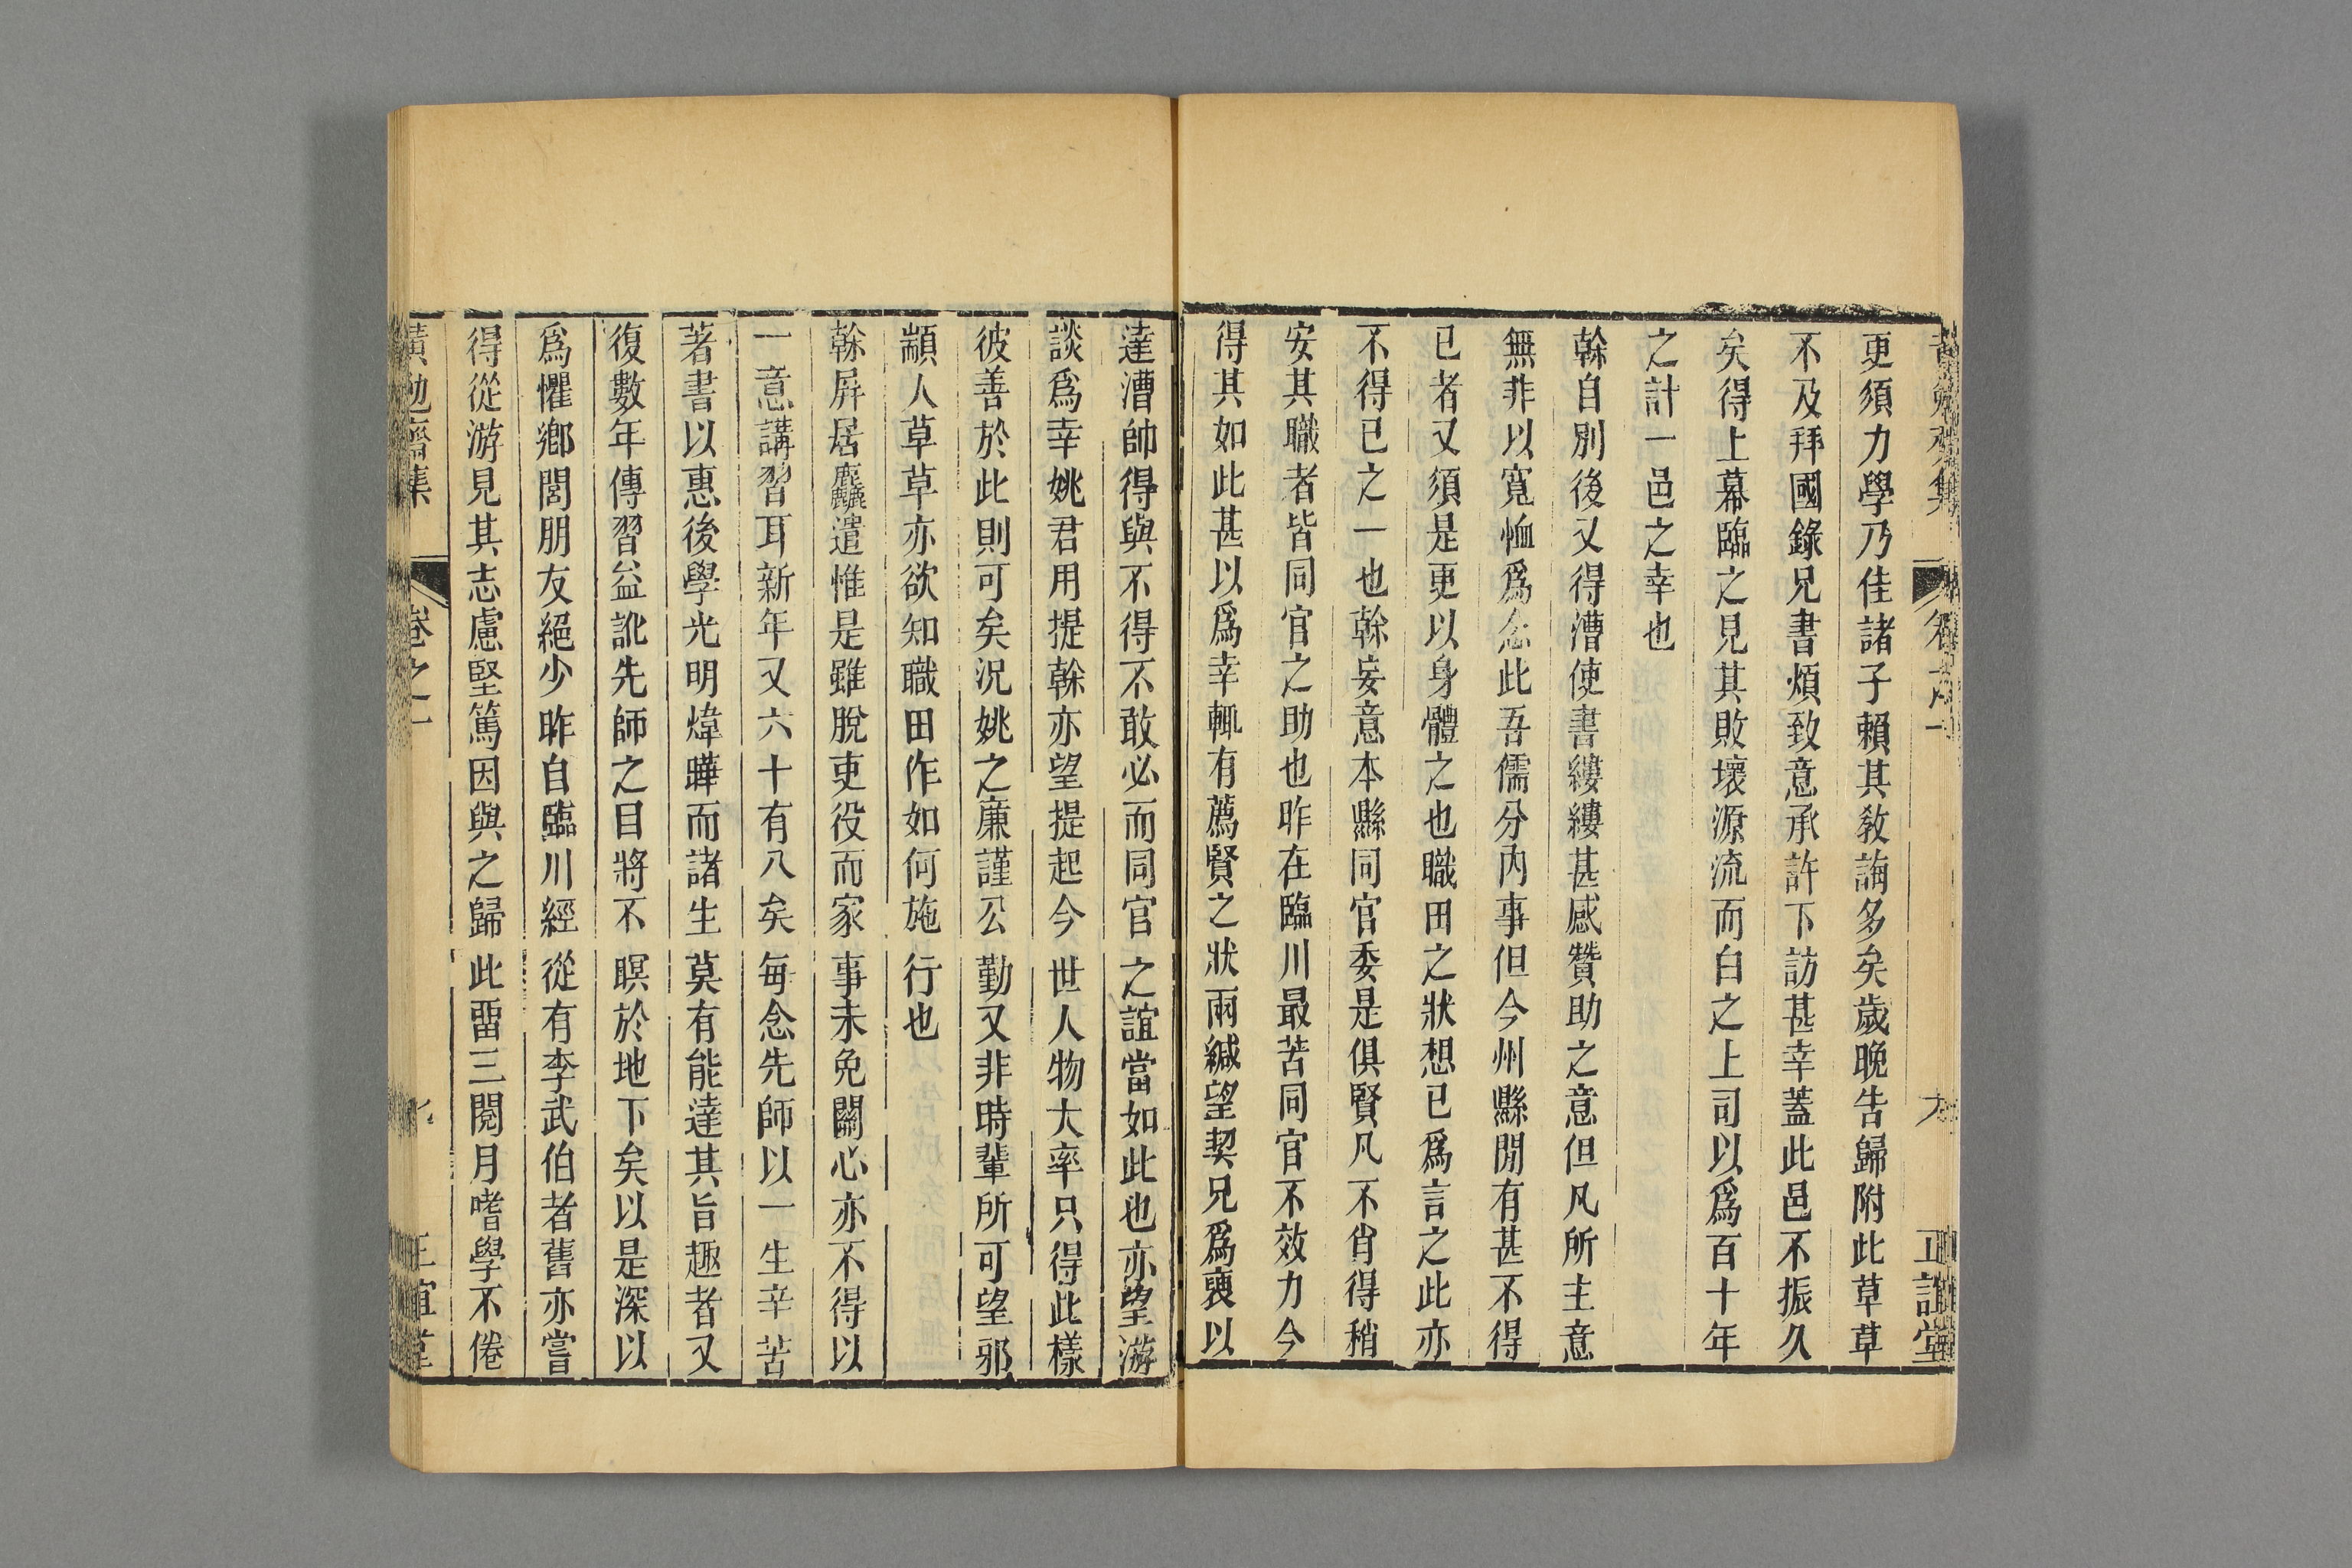 更須力學乃佳諸子賴其敎誨多矣歲晚告歸附此草草
不及拜國錄兄書煩致意承許下訪甚幸蓋此邑不振久
矣得上幕臨之見其敗壞源流而白之上司以爲百十年
之計一邑之幸也
榦自別後又得漕使書縷縷甚感贊助之意但凡所主意
無非以寬恤爲念此吾儒分內事但今州縣閒有甚不得
已者又須是更以身體之也職田之狀想已爲言之此亦
不得已之一也榦妄意本縣同官委是俱賢凡不肖得稍
安其職者皆同官之助也昨在臨川最苦同官不效力今
得其如此甚以爲幸輒有薦賢之狀兩緘望契兄爲褏以
達漕帥得與不得不敢必而同官之誼當如此也亦望游
談爲幸姚君用提榦亦望提起今世人物大率只得此樣
彼善於此則可矣況姚之廉謹公勤又非時輩所可望邪
顓人草草亦欲知職田作如何施行也
榦屛居麤遣惟是雖脫吏役而家事未免關心亦不得以
一意講習耳新年又六十有八矣每念先師以一生辛苦
著書以惠後學光明煒曄而諸生莫有能達其旨趣者又
復數年傳習益訛先師之目將不暝於地下矣以是深以
爲懼鄕閭朋友絕少昨自臨川經從有李武伯者舊亦嘗
得從游見其志慮堅篤因與之歸此畱三閱月嗜學不倦
黃勉齋集
卷之二
正誼堂